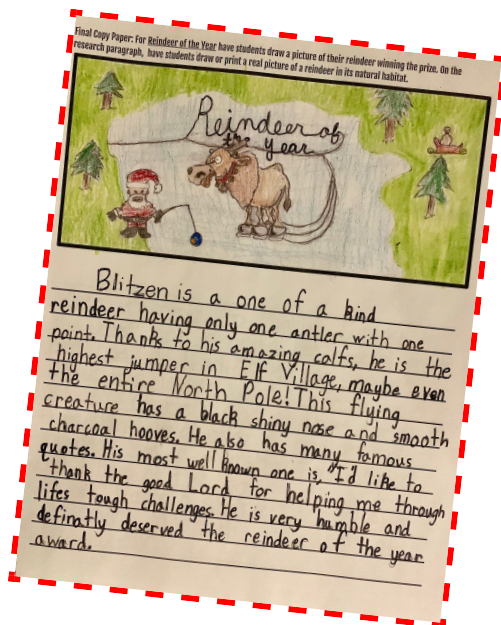 Final Copy Paper: For Reindeer of the Year have students draw a picture of their reindeer winning the prize. On the
research paragraph, have students draw or print a real picture of a reindeer in its natural habitat.
Reindeer of
the Year
Blitzen is a one of a kind
reindeer having only one antler with one
point. Thanks to his amazing calfs, he is the
highest jumper in Elf Village, maybe even
the entire North Pole! This flying
creature has a black shiny nose and smooth
charcoal hooves. He also has many famous
quotes. His most well known one is, "I'd like to
thank the good Lord for helping me through
lifes tough challenges. He is very humble and
definatly deserved the reindeer of the year
award.